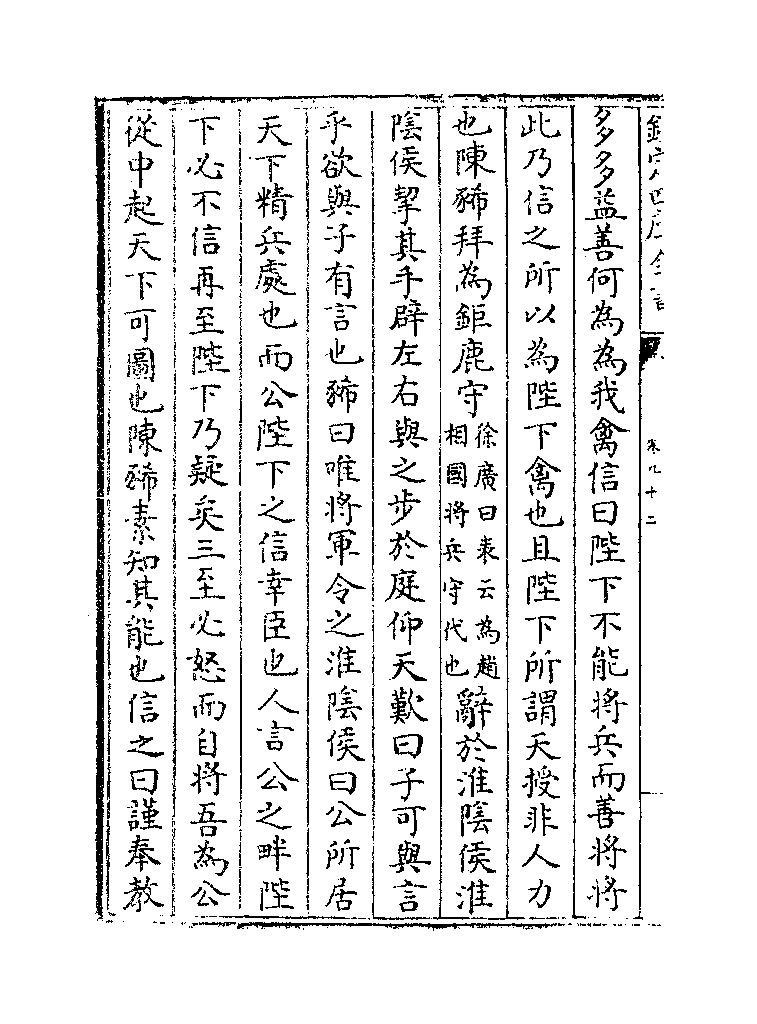 欽定四庫全書
卷九十二
多多益善何為為我禽信曰陛下不能將兵而善將將
此乃信之所以為陛下禽也且陛下所謂天授非人力
也陳豨拜為鉅鹿守徐廣曰表云為趙相國將兵守代也辭於淮陰侯淮
陰侯挈其手辟左右與之步於庭仰天歎曰子可與言
乎欲與子有言也豨曰唯將軍令之淮陰侯曰公所居
天下精兵處也而公陛下之信幸臣也人言公之畔陛
下必不信再至陛下乃疑矣三至必怒而自將吾為公
從中起天下可圖也陳豨素知其能也信之曰謹奉教